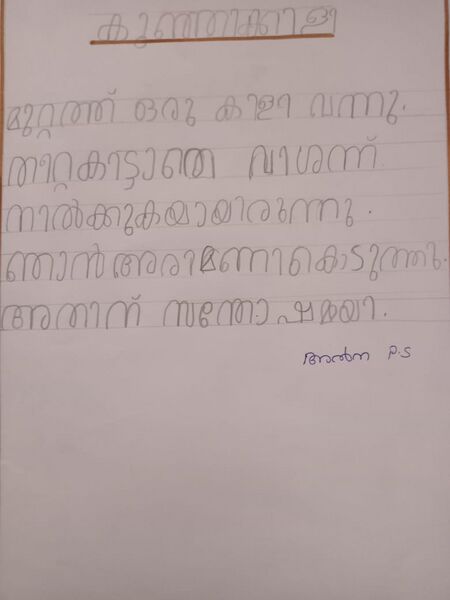 കുഞ്ഞിക്കിളി
മുറ്റത്ത് ഒരു കിളി വന്നു.
തീറ്റകിട്ടാതെ വിശന്ന്
നിൽക്കുകയായിരുന്നു.
ഞാൻ അരിമണി കൊടുത്തു.
അതിന് സന്തോഷമായി.
അൽന P.S